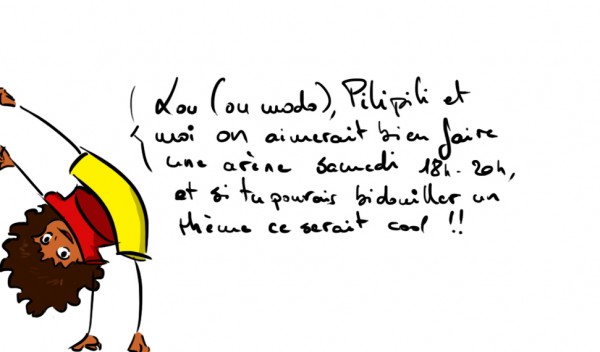 Lou (ou modo), Pilipili et
moi on aimerait bien faire
une arène samedi 18h-20h,
et si tu pouvais bidouiller un
thème ce serait cool !!